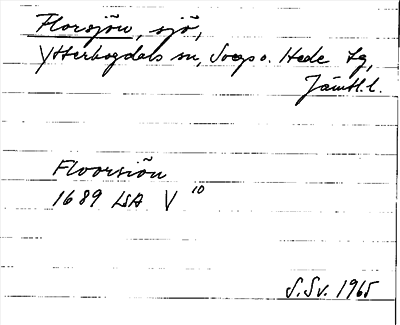 Florsjön, sjö,
Ytterhogdals sn, Svegs o. Hede tg,
Jämtl. l.
Floorsiön
1689 LSA V 10
S.Sv. 1965